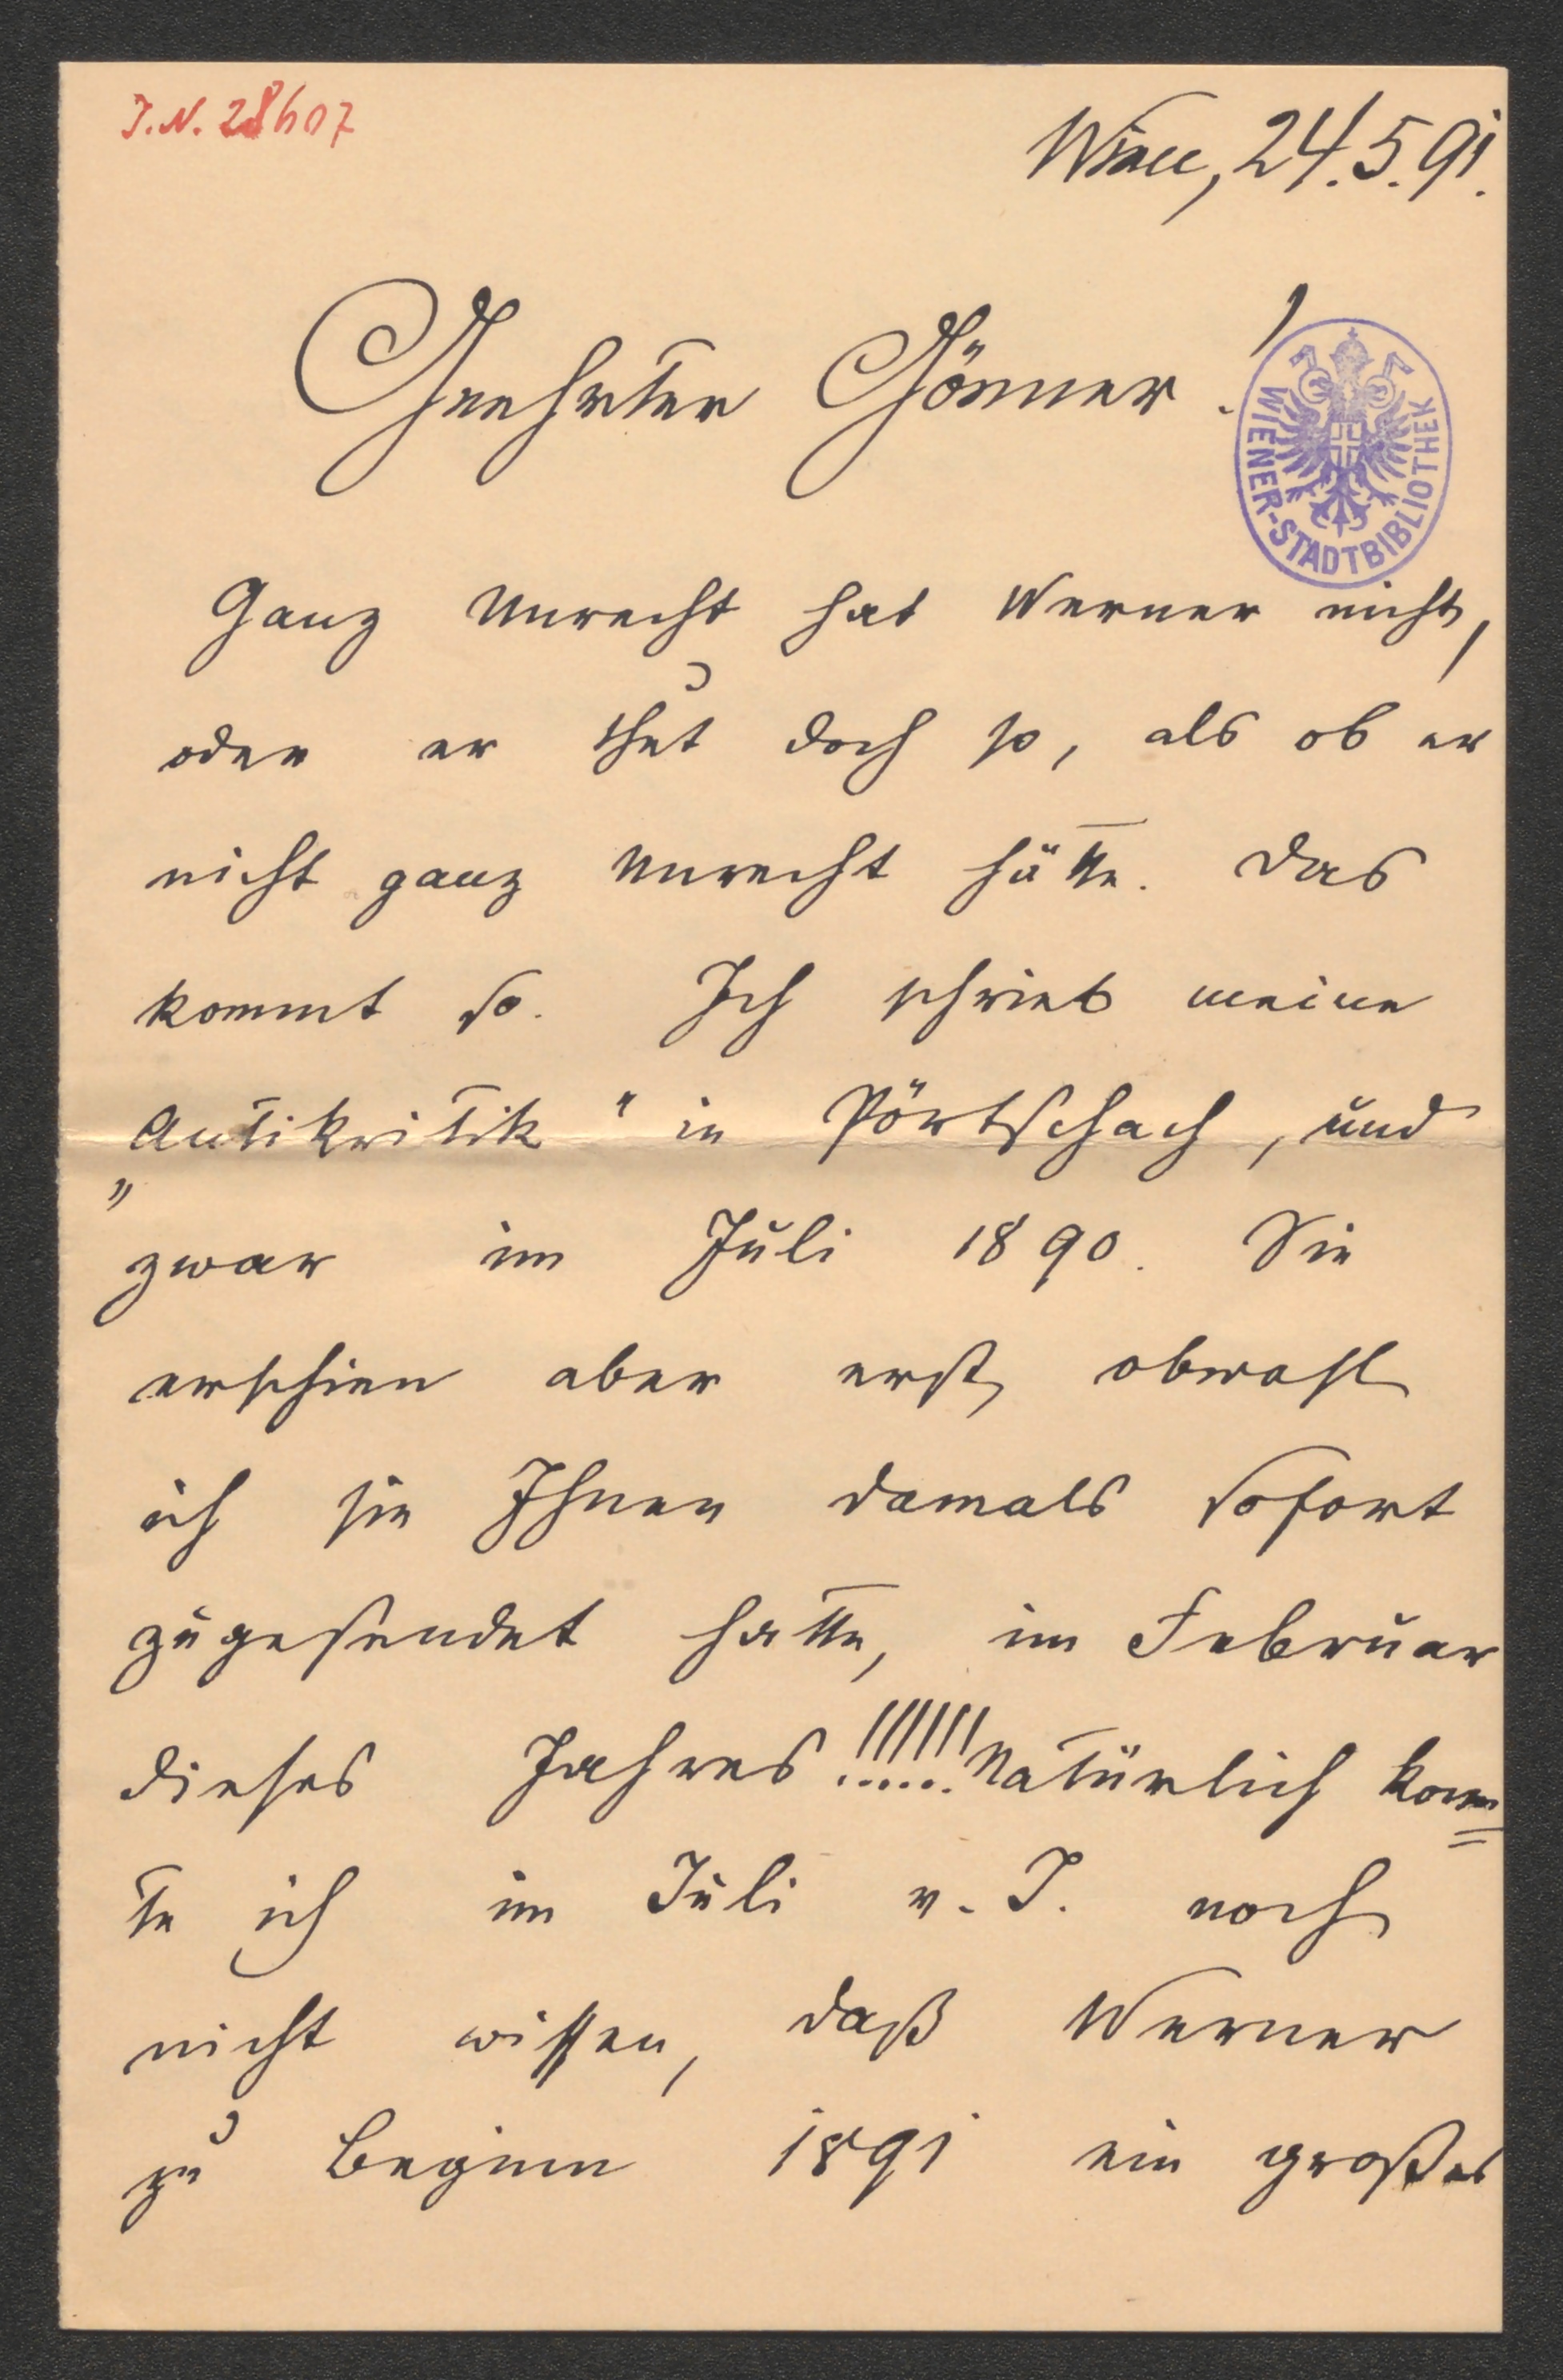 J.N. 28607
Wien, 24.5.91.
Geehrter Gönner!
WIENER-STADTBIBLIOTHEK
Ganz Unrecht hat Werner nicht,
oder er thut doch so, als ob er
nicht ganz Unrecht hätte. Das
kommt so. Ich schrieb meine
„Antikritik" in Pörtschach, und
zwar im Juli 1890. Sie
erschien aber erst, obwohl
ich sie Ihnen damals sofort
zugesendet hatte, im Februar
dieses Jahres!!!!!! Natürlich konn=
te ich im Juli v. J. noch
nicht wissen, daß Werner
zu Beginn 1891 ein großes